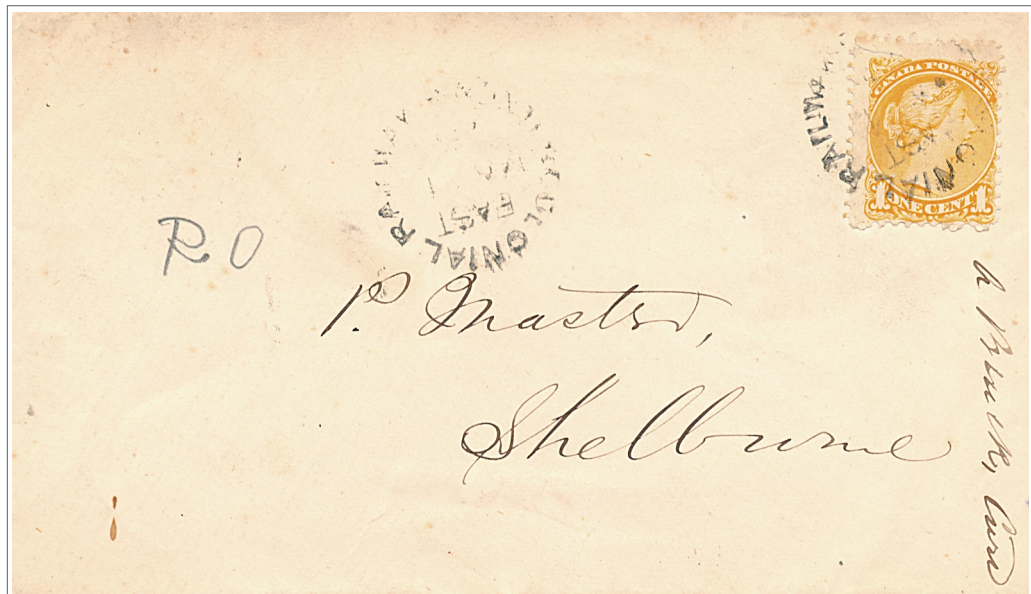 CANADA POSTAGE
1 ONE CENT 1
NIAL RAILWA
EAST
ONIAL RA
EAST
R O
P. Master,
Shelburne